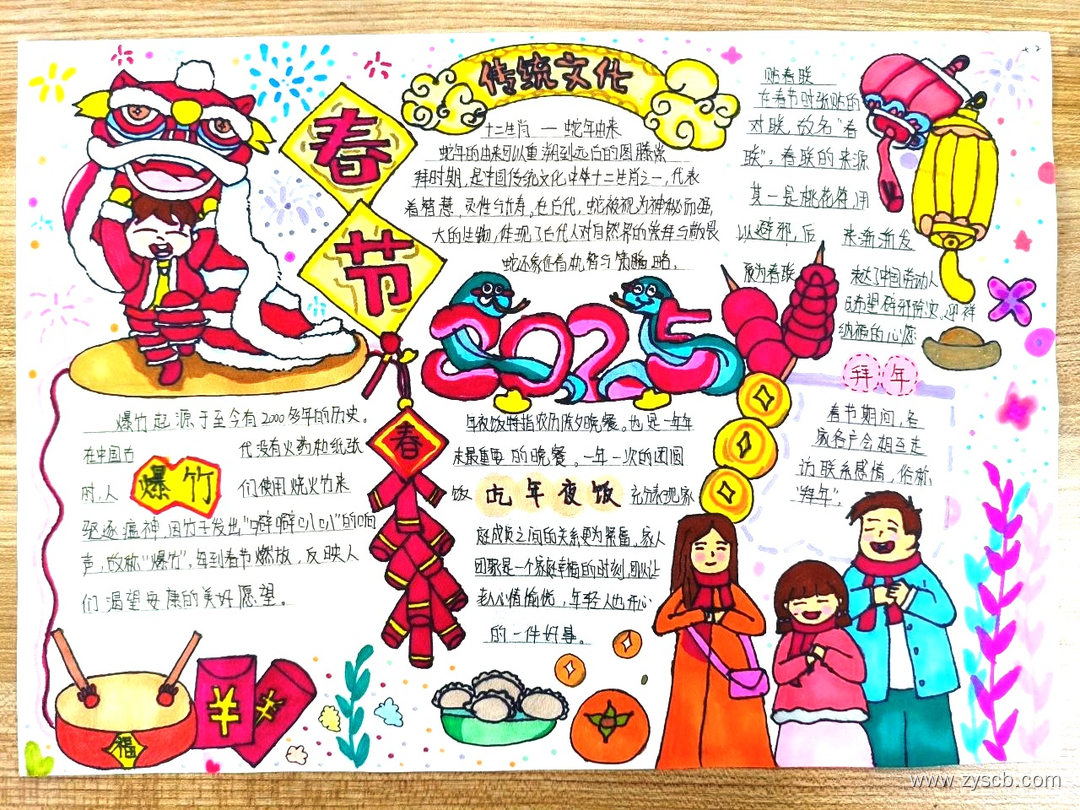 传统文化
春
节
十二生肖 — 蛇年由来
蛇年的由来可以重溯到远古的图腾崇
拜时期,是中国传统文化中华十二生肖之一,代表
着智慧,灵性与长寿,在古代,蛇被视为神秘而强
大的生物,体现了古代人对自然界的崇拜与敬畏
蛇还象征着机智与策略
2025
贴春联
在春节时张贴的
对联,故名"春
联"。春联的来源
其一是桃花符,用
以避邪,后 来渐渐发
展为春联 表达了中国劳动人
民希望辟邪除灾,迎祥
纳福的心愿
拜年
春节期间,各
家各户会相互走
访联系感情,俗称
"拜年"。
爆竹起源于至今有2000多年的历史。
在中国古 代没有火药和纸张
时,人 爆竹 们使用烧火竹来
驱逐瘟神,因竹子发出"噼噼叭叭"的响
声,故称"爆竹",每到春节燃放,反映人
们渴望安康的美好愿望。
春
年夜饭特指农历除夕晚餐。也是一年年
末最重要的晚餐。一年一次的团圆
饭 吃年夜饭 充分表现家
庭成员之间的关系更为紧密,家人
团聚是一个家庭幸福的时刻,可以让
老人心情愉悦,年轻人也开心
的一件好事。
福
¥
¥
www.zyscb.com